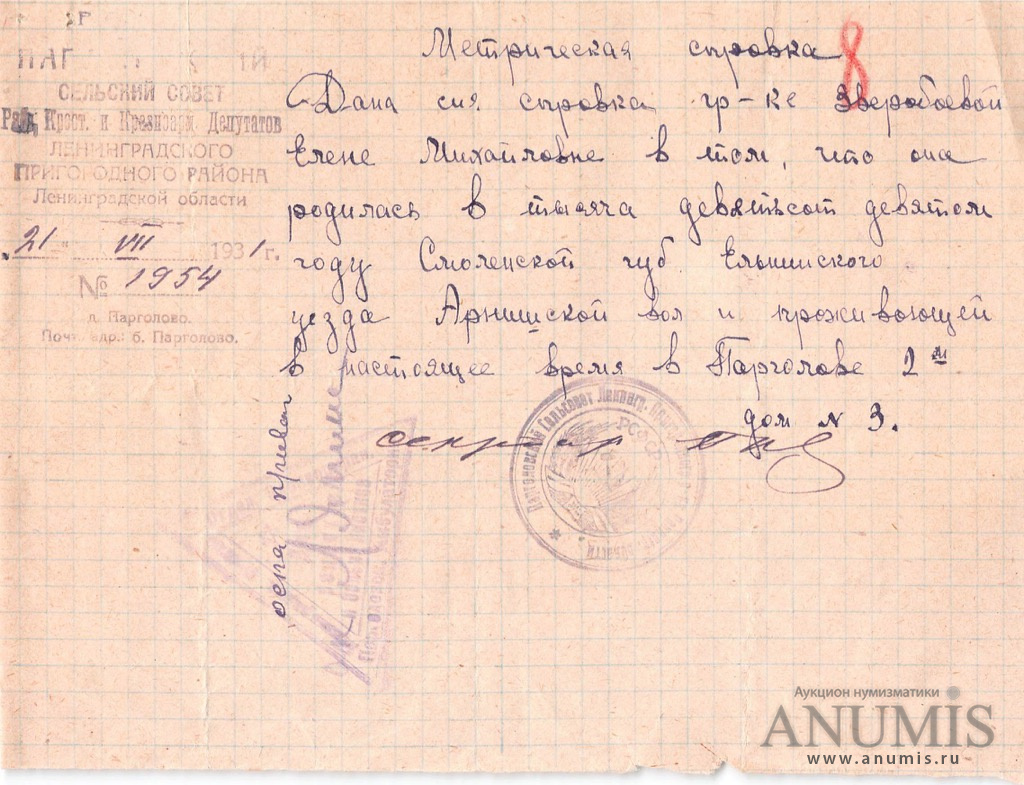 СЕЛЬСКИЙ СОВЕТ
Раб. Крест. и Красноарм. Депутатов
ЛЕНИНГРАДСКОГО
ПРИГОРОДНОГО РАЙОНА
Ленинградской области
"21" VII 1931 г.
№ 1954
д. Парголово.
Почт. адр.: б. Парголово.
Метрическая справка
8
Дана сия справка гр-ке Зверобоевой
Елене Михайловне в том, что она
родилась в тысяча девятьсот девятом
году Смоленской губ. Ельнинского
уезда Арнишской вол и проживающей
в настоящее время в Парголове 2м
дом № 3.
оспа
Парголовский Сельсовет Ленингр.
РСФСР
Аукцион нумизматики
ANUMIS
www.anumis.ru